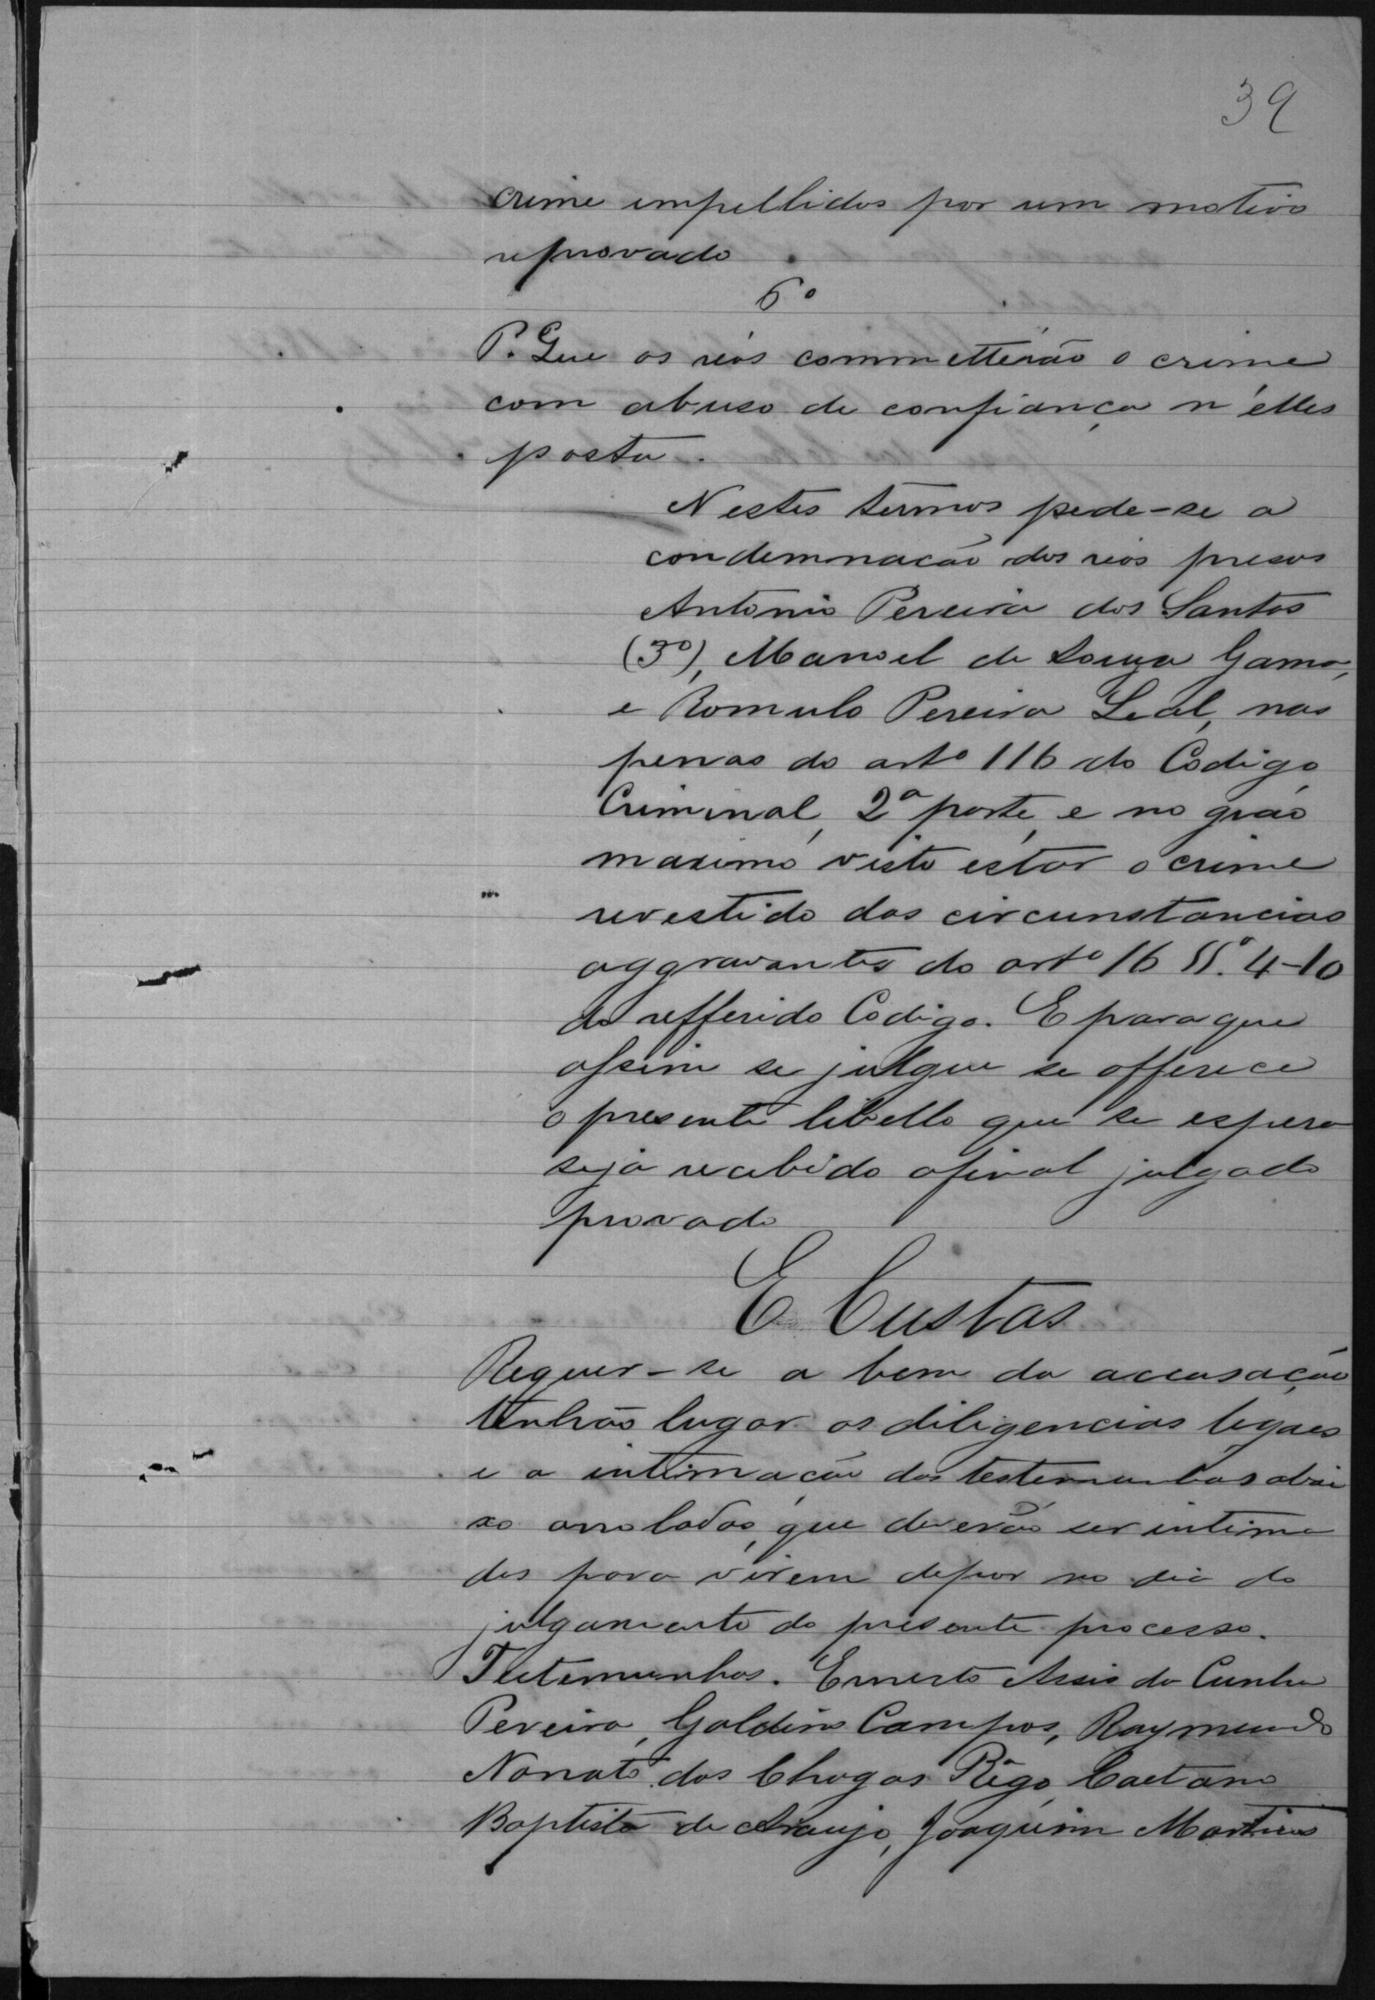 39
crime impellidos por um motivo
reprovado.
6º
P. Que os réos commetterão o crime
com abuso de confiança n'elles
posta.
Nestes termos pede-se a
condemnação dos réos presos
Antonio Pereira dos Santos
(3º), Manoel de Souza Gama,
e Romulo Pereira Leal, nas
penas do artº 116 do Codigo
Criminal, 2ª parte, e no gráo
maximo visto estar o crime
revestido das circunstancias
aggravantes do artº 16 §§º. 4-10
do refferido Codigo. E para que
assim se julgue se offerece
o presente libello que se espera
seja recebido afinal julgado
provado
E Custas
Requer-se a bem da accusação
tenhão lugar as diligencias legaes
e a intimação das testemunhas abai
xo arroladas, que deverão ser intima
das para virem depor no dia do
julgamento do presente processo.
Testemunhas. Ernesto Assis da Cunha
Pereira, Galdino Campos, Raymundo
Nonato das Chagas Rêgo, Caetano
Baptista de Araujo, Joaquim Martins